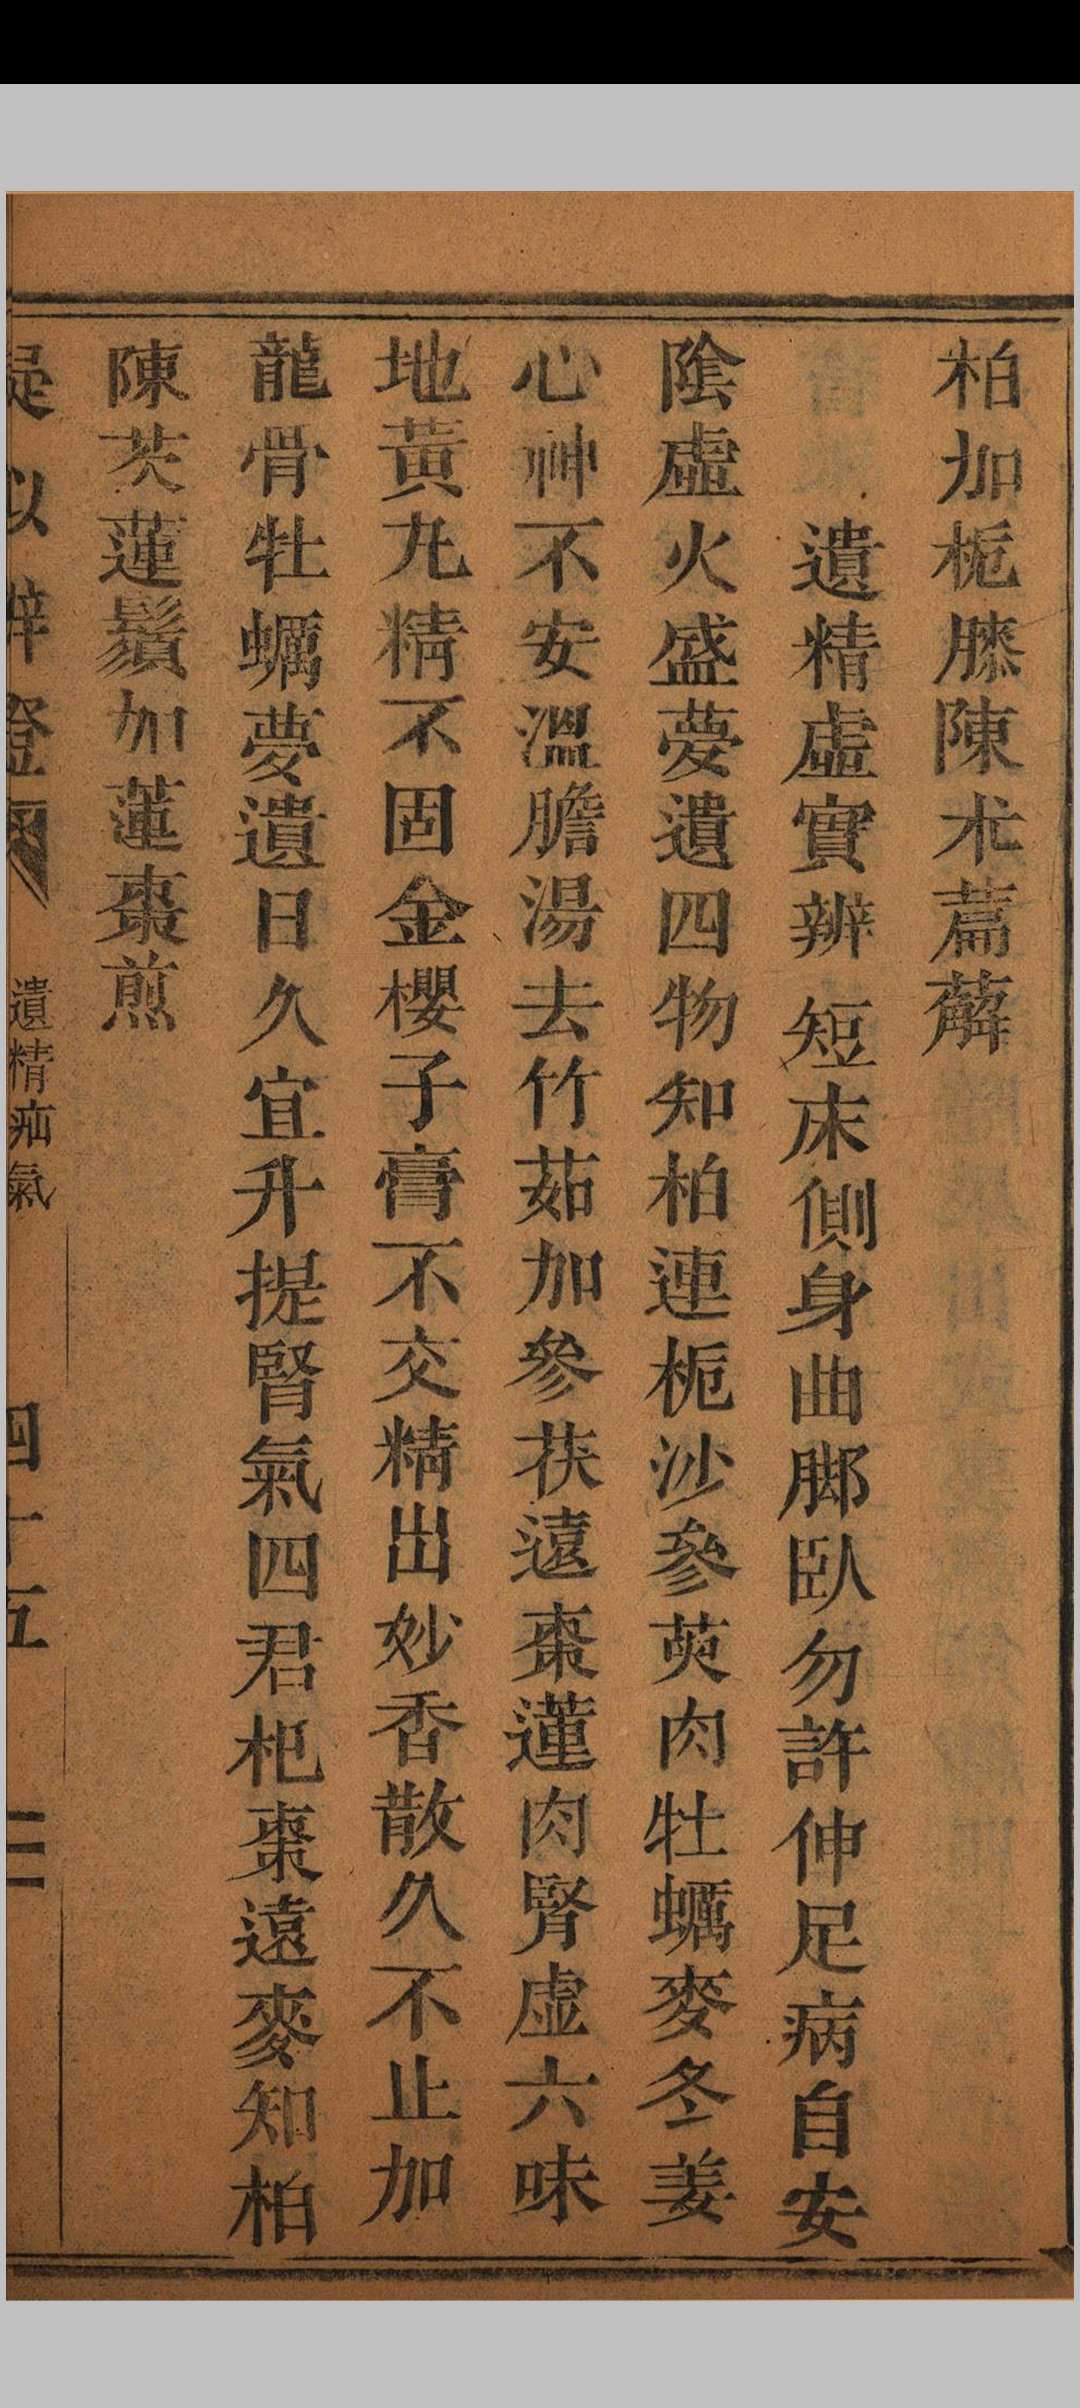 柏加梔膝陳朮萹薢
遺精虛實辨 短床側身曲脚臥勿許伸足病自安
陰虛火盛夢遺四物知柏連梔沙參萸肉牡蠣麥冬姜
心神不安溫膽湯去竹茹加參茯遠棗蓮肉腎虛六味
地黃丸精不固金櫻子膏不交精出妙香散久不止加
龍骨牡蠣夢遺日久宜升提腎氣四君杞棗遠麥知柏
陳芡蓮鬚加蓮棗煎
疑似辨證
遺精疝氣
四十五